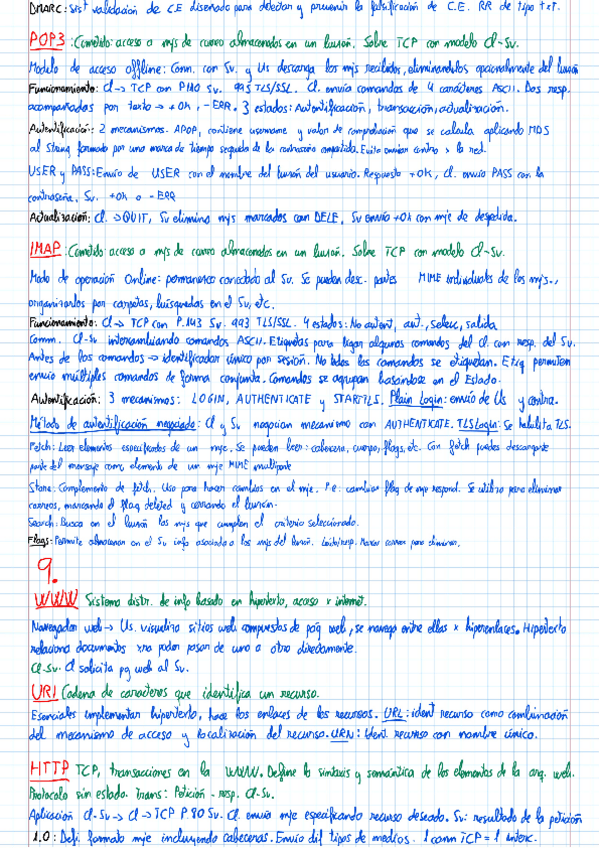 DMARC: Sist validación de C.E diseñado para detectar y prevenir la falsificación de C.E. RR de tipo txt.
POP3: Cometido: acceso a mjs de correo almacenados en un buzón. Sobre TCP con modelo Cl-Sv.
Modelo de acceso offline: Conn. con Sv. y Us descarga los mjs recibidos, eliminándolos opcionalmente del buzón
Funcionamiento: Cl → TCP con P.110 Sv. 995 TLS/SSL. Cl. envía comandos de 4 caracteres ASCII. Dos resp.
acompañadas por texto → +OK, -ERR. 3 estados: Autentificación, transacción, actualización.
Autentificación: 2 mecanismos. APOP, contiene username y valor de comprobación que se calcula aplicando MD5
al String formado por una marca de tiempo seguida de la contraseña compartida. Evita enviar contra x la red.
USER y PASS: Envío de USER con el nombre del buzón del usuario. Respuesta +OK, Cl. envía PASS con la
contraseña. Sv. +OK o -ERR
Actualización: Cl. → QUIT, Sv elimina mjs marcados con DELE, Sv envía +OK con mje de despedida.
IMAP: Cometido: acceso a mjs de correo almacenados en un buzón. Sobre TCP con modelo Cl-Sv.
Modo de operación Online: permanece conectado al Sv. Se pueden desc. partes MIME individuales de los mjs.,
organizarlos por carpetas, búsquedas en el Sv, etc.
Funcionamiento: Cl → TCP con P.143 Sv. 993 TLS/SSL. 4 estados: No autent, aut., selecc, salida
Comm. Cl-Sv intercambiando comandos ASCII. Etiquetas para ligar algunos comandos del Cl con resp. del Sv.
Antes de los comandos → identificador único por sesión. No todos los comandos se etiquetan. Etiq permiten
envío múltiples comandos de forma conjunta. Comandos se agrupan basándose en el Estado.
Autentificación: 3 mecanismos: LOGIN, AUTHENTICATE y STARTTLS. Plain Login: envío de Us y contra.
Método de autentificación negociado: Cl y Sv negocian mecanismo con AUTHENTICATE. TLS Login: Se habilita TLS.
Fetch: Leer elementos especificados de un mje. Se pueden leer: cabecera, cuerpo, flags, etc. Con fetch puedes descargarte
parte del mensaje como elemento de un mje MIME multiparte
Store: Complemento de fetch. Uso para hacer cambios en el mje. P.e: cambiar flag de mje respond. Se utiliza para eliminar
correos, marcando el flag deleted y cerrando el buzón.
Search: Busca en el buzón los mjs que cumplen el criterio seleccionado.
Flags: Permite almacenar en el Sv info asociada a los mjs del buzón. Leído/resp. Marcar correos para eliminar.
9.
WWW Sistema distr. de info basado en hipertexto, acceso x internet.
Navegador web → Us. visualiza sitios web compuestos de pág web, se navega entre ellas x hiperenlaces. Hipertexto
relaciona documentos xra poder pasar de uno a otro directamente.
Cl-Sv. Cl solicita pg web al Sv.
URI Cadena de caracteres que identifica un recurso.
Esenciales implementar hipertexto, hace los enlaces de los recursos. URL: ident recurso como combinación
del mecanismo de acceso y localización del recurso. URN: Ident. recurso con nombre único.
HTTP TCP, transacciones en la WWW. Define la sintaxis y semántica de los elementos de la arq. web.
Protocolo sin estado. Trans: Petición - resp. Cl-Sv.
Aplicación Cl-Sv → Cl → TCP P.80 Sv. Cl. envía mje especificando recurso deseado. Sv: resultado de la petición
1.0: Def. formato mje incluyendo cabeceras. Envío dif tipos de medios. 1 conn TCP = 1 interc.